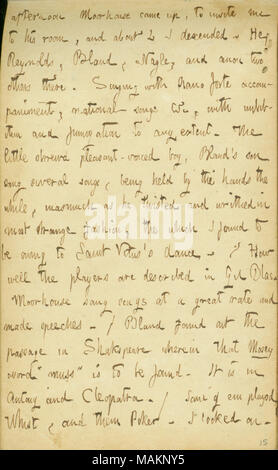 afternoon Moorhouse came up, to invite me
to his room, and about 2 I descended. Hey,
Reynolds, Bland, Nagle, and anon two
others there. Singing with Piano forte accom-
paniment, national songs &c, with
and to any extent. The
little shrewd pleasant-voiced boy, Bland's son
sung several songs, being held by the hands the
while, inasmuch as he twisted and writhed in
most strange fashion, the which I found to
be owing to Saint Vitus's dance. / How
well the players are described in Gil Blas.
Moorhouse sang songs at a great rate and
made speeches. / Bland found out the
passage in Shakspeare wherein that Mosey
word "muss" is to be found. It is in
Antony and Cleopatra. / Some of em played
Whist, and then Poker. I looked on
15
alamy
Image ID: MAKNY5
www.alamy.com